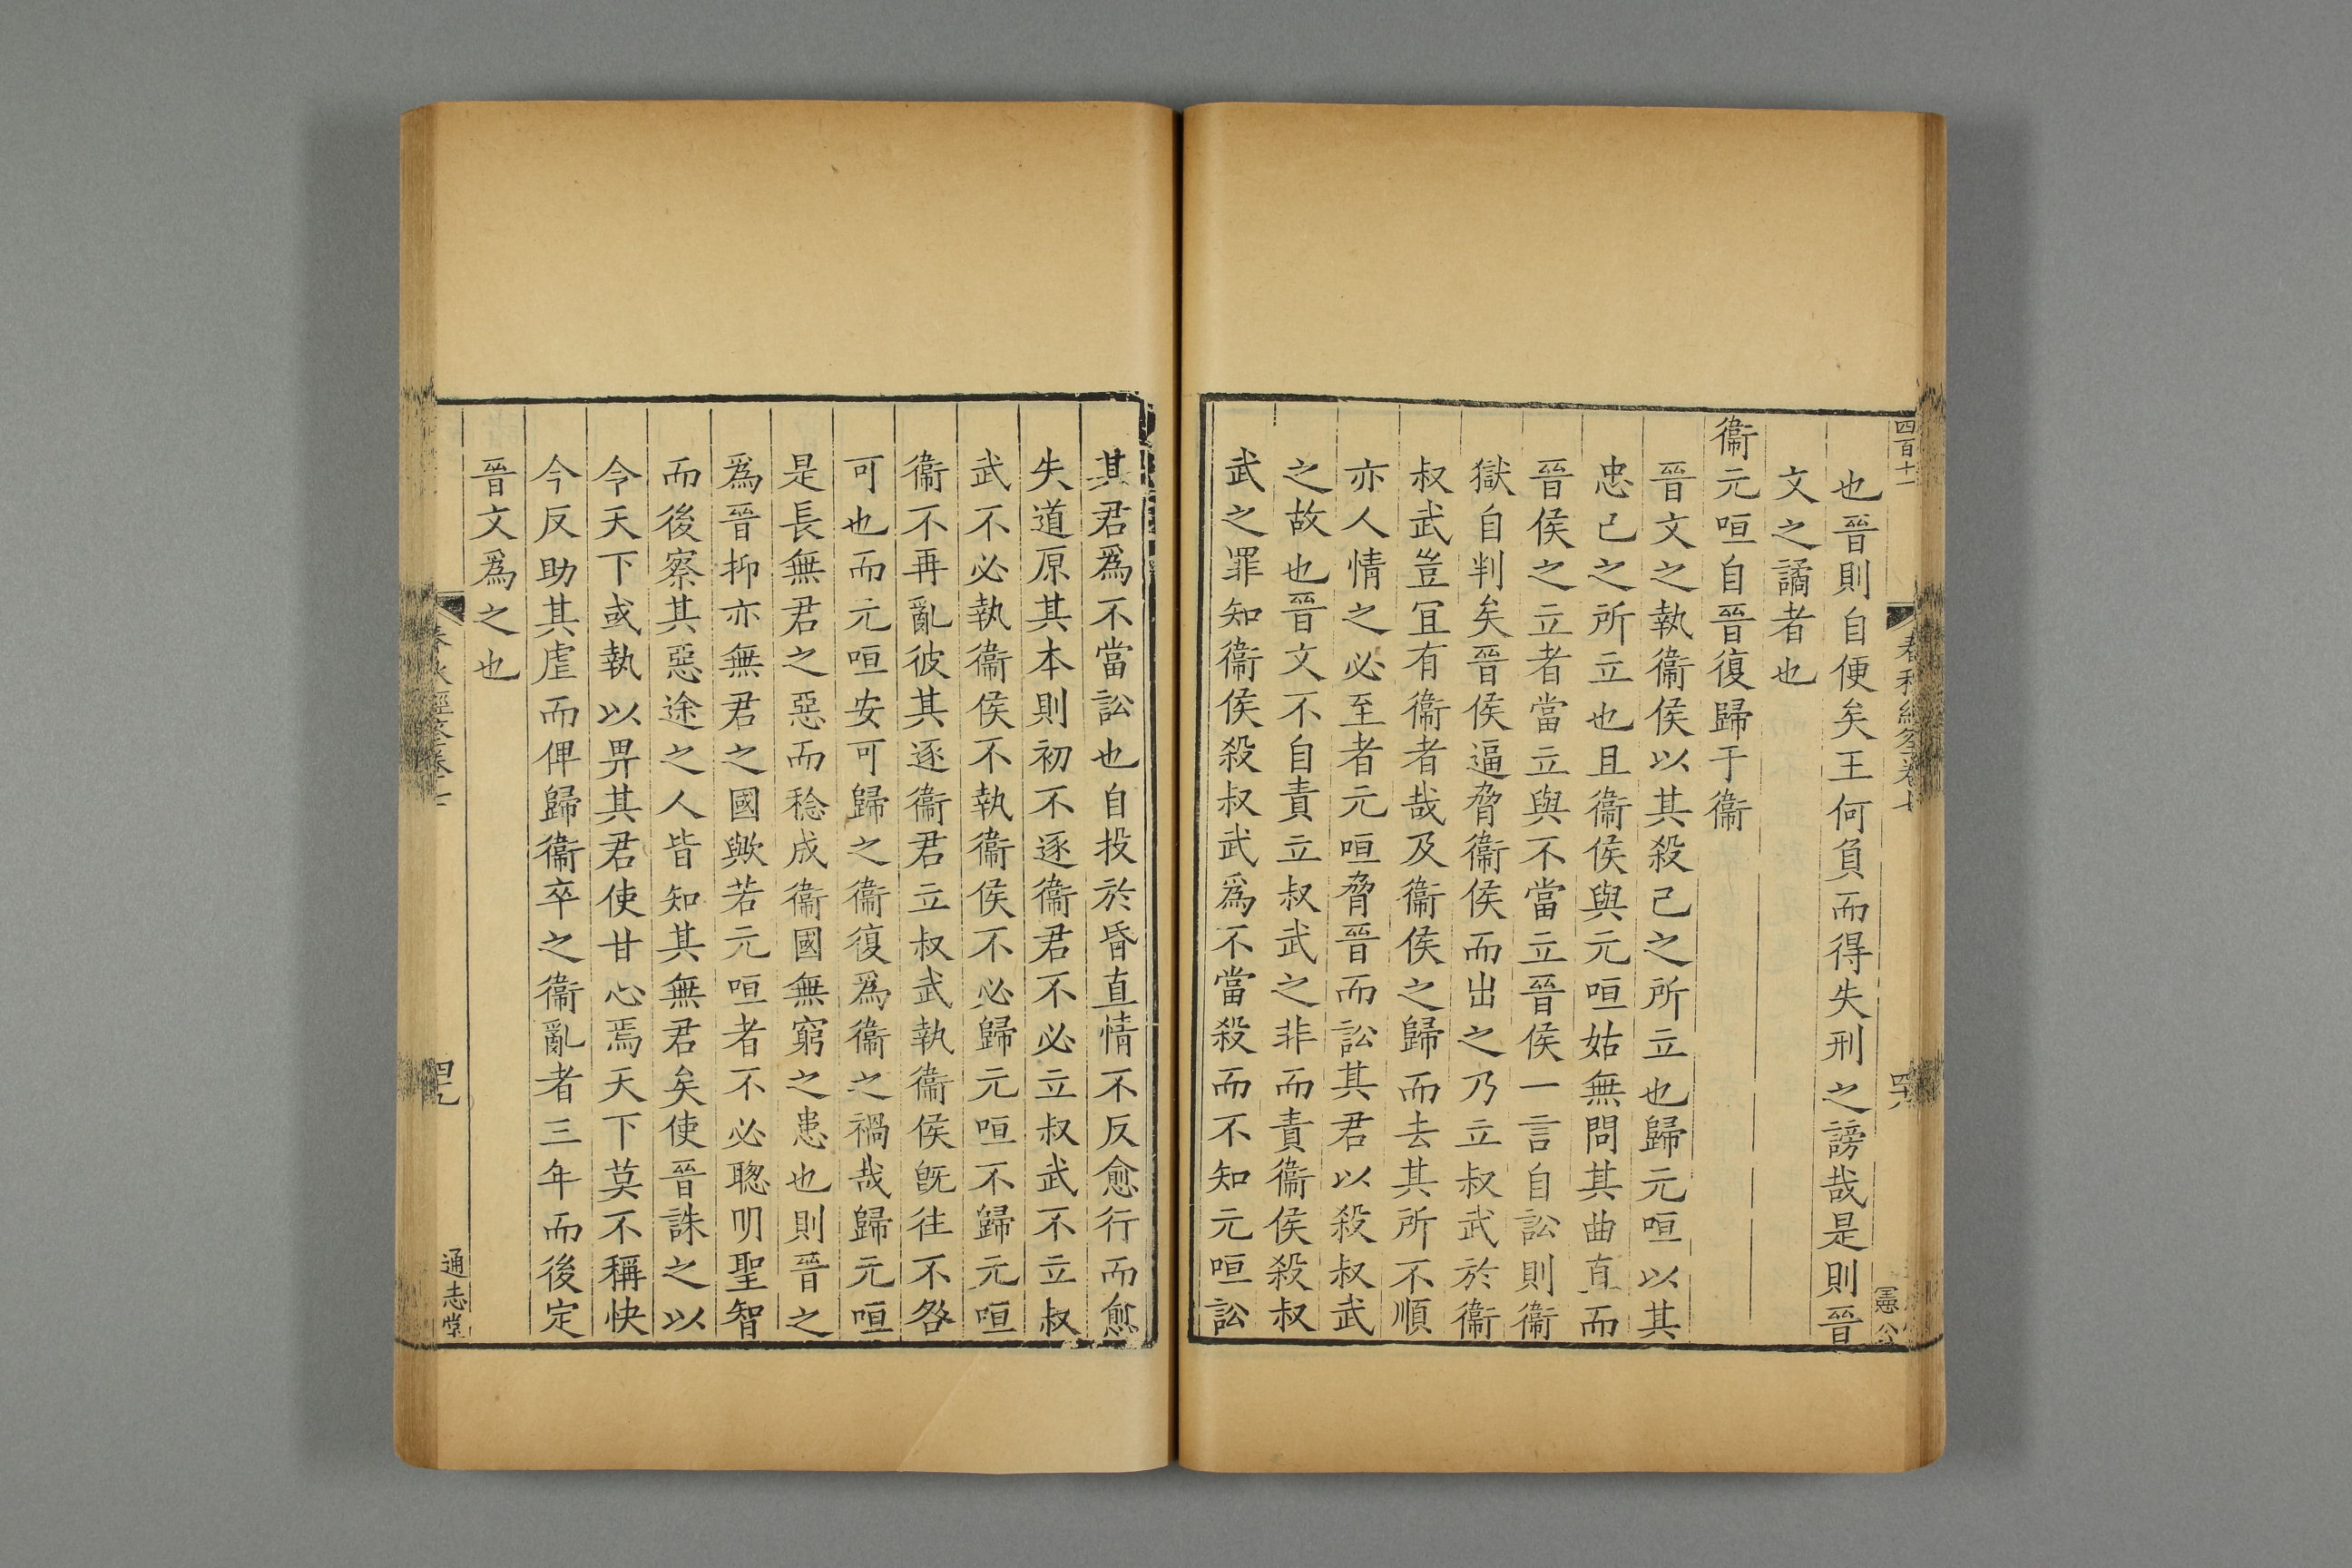 四百十一
春秋經筌卷七
憲公
也晉則自便矣王何負而得失刑之謗哉是則晉
文之譎者也
衞元咺自晉復歸于衞
晉文之執衞侯以其殺己之所立也歸元咺以其
忠己之所立也且衞侯與元咺姑無問其曲直而
晉侯之立者當立與不當立晉侯一言自訟則衞
獄自判矣晉侯逼脅衞侯而出之乃立叔武於衞
叔武豈宜有衞者哉及衞侯之歸而去其所不順
亦人情之必至者元咺脅晉而訟其君以殺叔武
之故也晉文不自責立叔武之非而責衞侯殺叔
武之罪知衞侯殺叔武爲不當殺而不知元咺訟
其君爲不當訟也自投於昏直情不反愈行而愈
失道原其本則初不逐衞君不必立叔武不立叔
武不必執衞侯不執衞侯不必歸元咺不歸元咺
衞不再亂彼其逐衞君立叔武執衞侯旣往不咎
可也而元咺安可歸之衞復爲衞之禍哉歸元咺
是長無君之惡而稔成衞國無窮之患也則晉之
爲晉抑亦無君之國歟若元咺者不必聰明聖智
而後察其惡途之人皆知其無君矣使晉誅之以
令天下或執以畀其君使甘心焉天下莫不稱快
今反助其虐而俾歸衞卒之衞亂者三年而後定
晉文爲之也
春秋經筌卷七
通志堂